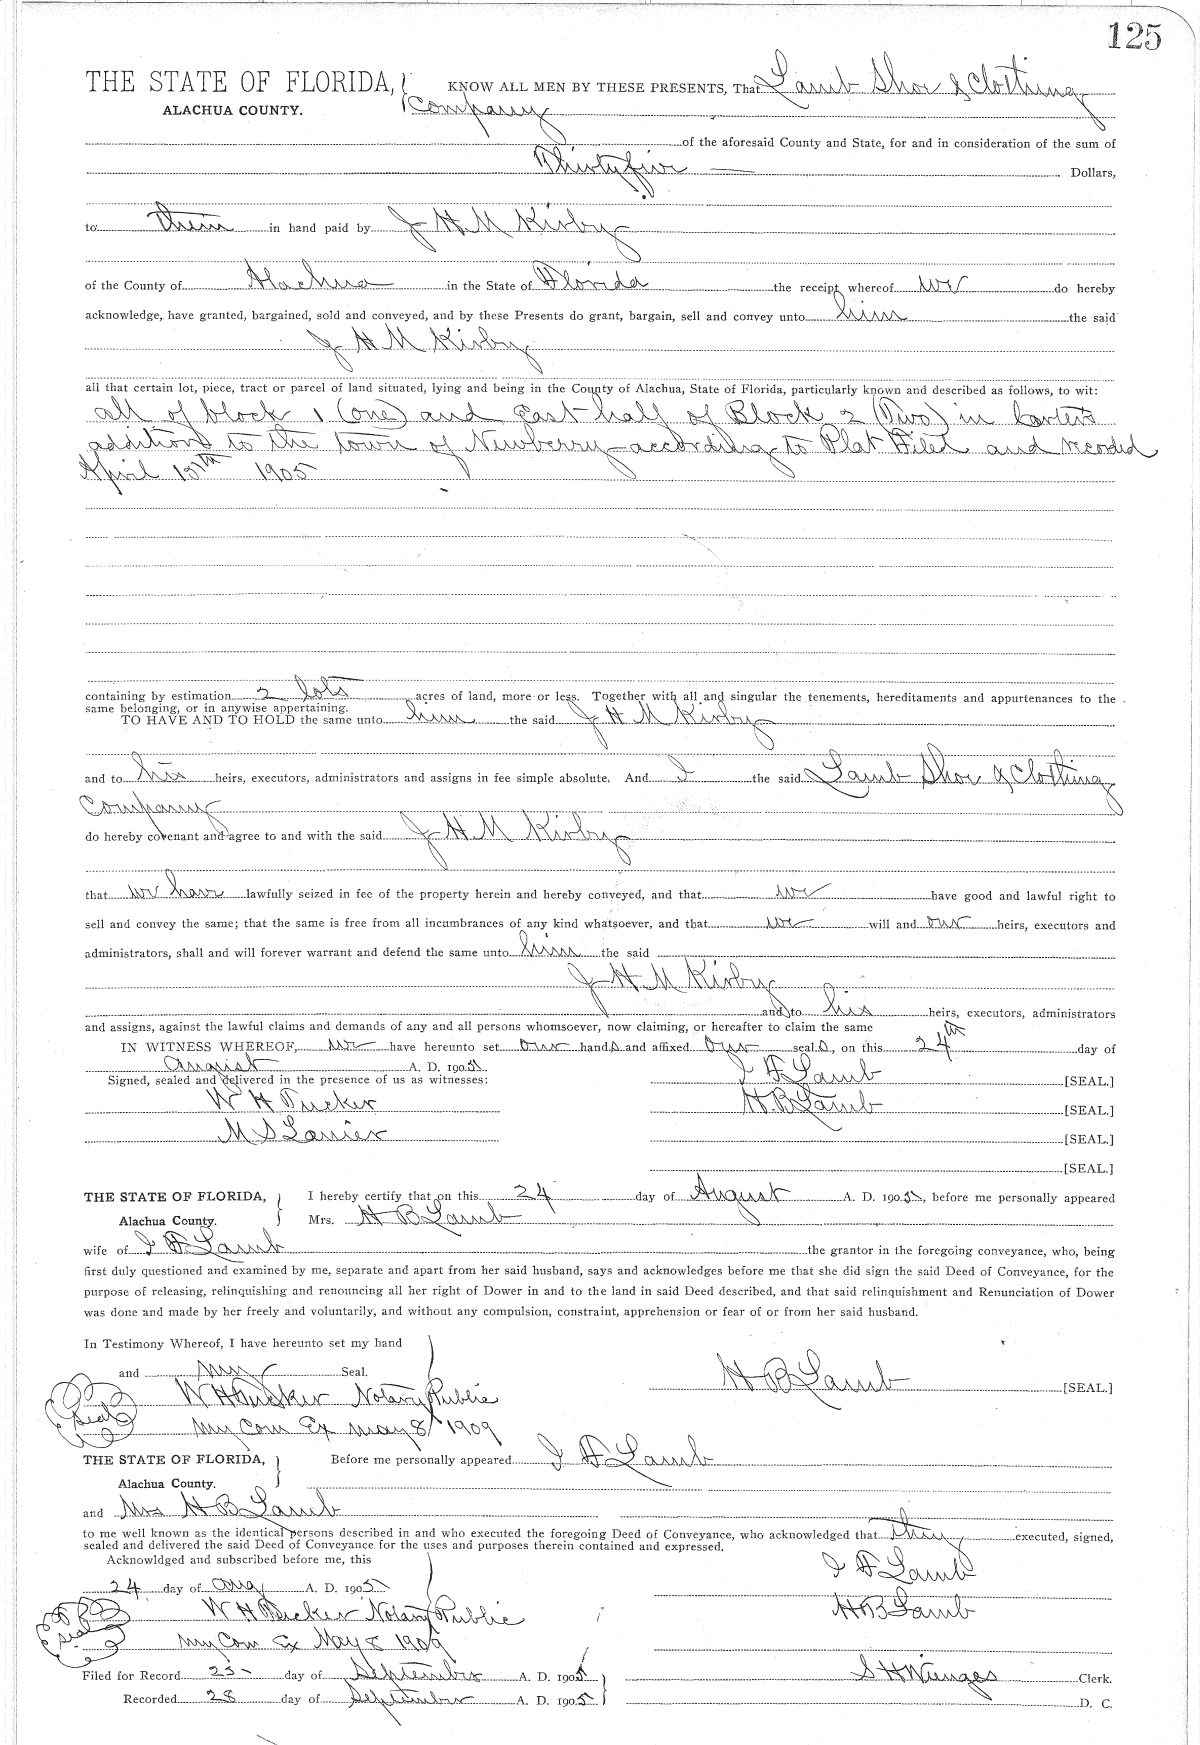 125
THE STATE OF FLORIDA, KNOW ALL MEN BY THESE PRESENTS, That Lamb Shoe & Clothing
ALACHUA COUNTY. Company
of the aforesaid County and State, for and in consideration of the sum of
Thirty five Dollars,
to them in hand paid by J H M Kirby
of the County of Alachua in the State of Florida the receipt whereof we do hereby
acknowledge, have granted, bargained, sold and conveyed, and by these Presents do grant, bargain, sell and convey unto him the said
J H M Kirby
all that certain lot, piece, tract or parcel of land situated, lying and being in the County of Alachua, State of Florida, particularly known and described as follows, to wit:
all of block 1 (one) and East half of Block 2 (Two) in
addition to the town of Newberry according to Plat Filed and recorded
April 15th 1905
containing by estimation 2 lots acres of land, more or less. Together with all and singular the tenements, hereditaments and appurtenances to the
same belonging, or in anywise appertaining.
TO HAVE AND TO HOLD the same unto him the said J H M Kirby
and to his heirs, executors, administrators and assigns in fee simple absolute. And I the said Lamb Shoe & Clothing
Company
do hereby covenant and agree to and with the said J H M Kirby
that we have lawfully seized in fee of the property herein and hereby conveyed, and that we have good and lawful right to
sell and convey the same; that the same is free from all incumbrances of any kind whatsoever, and that we will and our heirs, executors and
administrators, shall and will forever warrant and defend the same unto him the said
J H M Kirby
and to his heirs, executors, administrators
and assigns, against the lawful claims and demands of any and all persons whomsoever, now claiming, or hereafter to claim the same
IN WITNESS WHEREOF, we have hereunto set our hands and affixed our seals, on this 24th day of
August A. D. 1905. J F Lamb
Signed, sealed and delivered in the presence of us as witnesses: [SEAL.]
W H Tucker H. B Lamb [SEAL.]
M S Lanier [SEAL.]
[SEAL.]
THE STATE OF FLORIDA, I hereby certify that on this 24 day of August A. D. 1905, before me personally appeared
Alachua County. Mrs. H B Lamb
wife of J F Lamb the grantor in the foregoing conveyance, who, being
first duly questioned and examined by me, separate and apart from her said husband, says and acknowledges before me that she did sign the said Deed of Conveyance, for the
purpose of releasing, relinquishing and renouncing all her right of Dower in and to the land in said Deed described, and that said relinquishment and Renunciation of Dower
was done and made by her freely and voluntarily, and without any compulsion, constraint, apprehension or fear of or from her said husband.
In Testimony Whereof, I have hereunto set my hand
and my Seal. H B Lamb [SEAL.]
Seal W H Tucker Notary Public
My Com Ex May 8 1909
THE STATE OF FLORIDA, Before me personally appeared J F Lamb
Alachua County.
and Mrs H B Lamb
to me well known as the identical persons described in and who executed the foregoing Deed of Conveyance, who acknowledged that they executed, signed,
sealed and delivered the said Deed of Conveyance for the uses and purposes therein contained and expressed.
Acknowldged and subscribed before me, this J F Lamb
24 day of Aug A. D. 1905
Seal W H Tucker Notary Public H B Lamb
My Com Ex May 8 1909
Filed for Record 25 day of September A. D. 1905 S H Wienges Clerk.
Recorded 28 day of September A. D. 1905 D. C.